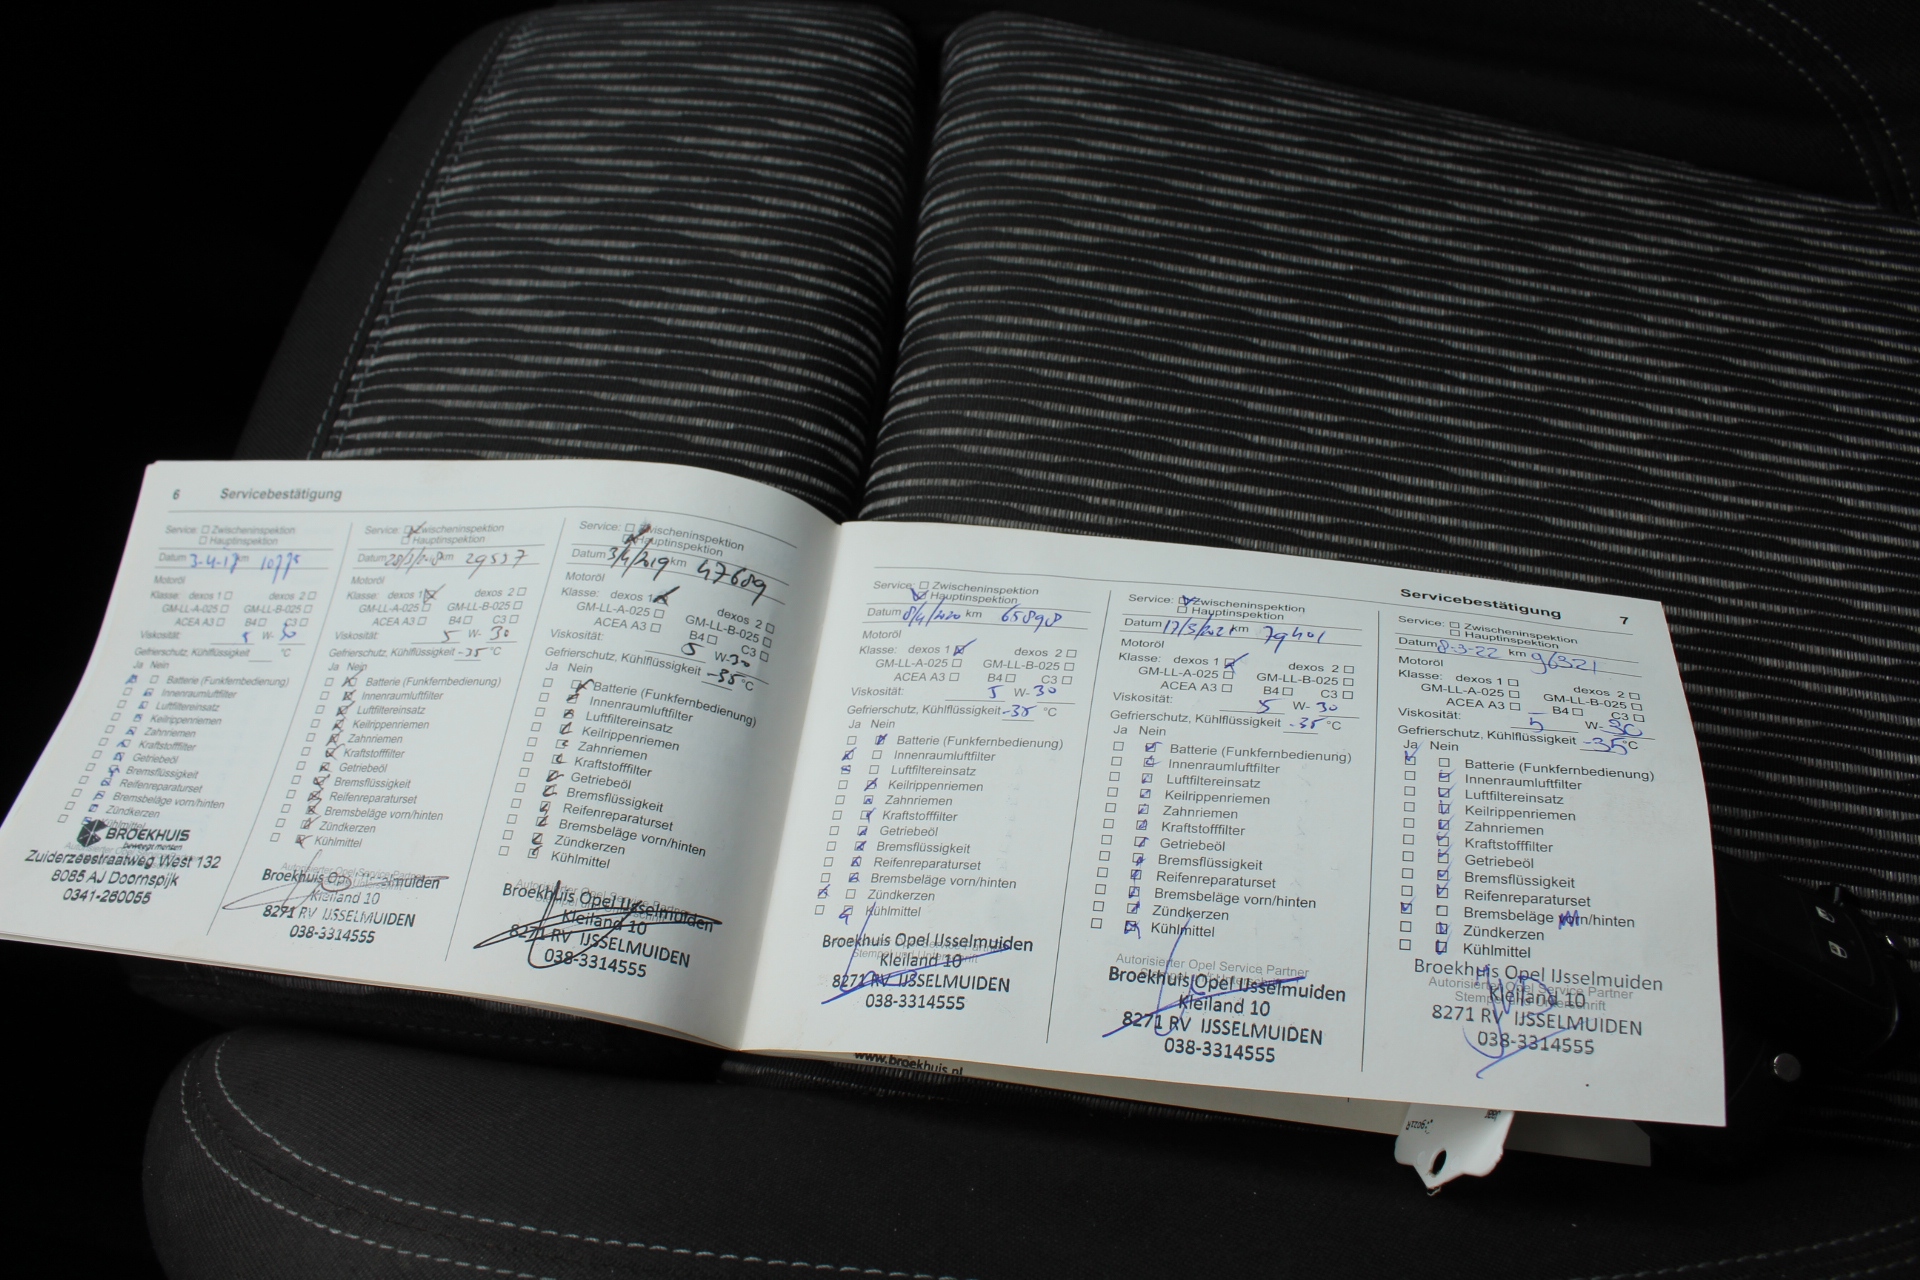 6 Servicebestätigung
Service: Zwischeninspektion
Hauptinspektion
Datum 3-4-17 km
Motoröl
Klasse: dexos 1 dexos 2
GM-LL-A-025 GM-LL-B-025
ACEA A3 B4 C3
Viskosität: 5 W- 30
Gefrierschutz, Kühlflüssigkeit °C
Ja Nein
Batterie (Funkfernbedienung)
Innenraumluftfilter
Luftfiltereinsatz
Keilrippenriemen
Zahnriemen
Kraftstofffilter
Getriebeöl
Bremsflüssigkeit
Reifenreparaturset
Bremsbeläge vorn/hinten
Zündkerzen
Kühlmittel
BROEKHUIS
beweegt mensen
Zuiderzeestraatweg West 132
8085 AJ Doornspijk
0341-260055
Service: Zwischeninspektion
Hauptinspektion
Datum 28/3/2018 km 29537
Motoröl
Klasse: dexos 1 dexos 2
GM-LL-A-025 GM-LL-B-025
ACEA A3 B4 C3
Viskosität: 5 W- 30
Gefrierschutz, Kühlflüssigkeit -35 °C
Ja Nein
Batterie (Funkfernbedienung)
Innenraumluftfilter
Luftfiltereinsatz
Keilrippenriemen
Zahnriemen
Kraftstofffilter
Getriebeöl
Bremsflüssigkeit
Reifenreparaturset
Bremsbeläge vorn/hinten
Zündkerzen
Kühlmittel
Broekhuis Opel IJsselmuiden
Kleiland 10
8271 RV IJSSELMUIDEN
038-3314555
Service: Zwischeninspektion
Hauptinspektion
Datum 3/4/2019 km 47689
Motoröl
Klasse: dexos 1 dexos 2
GM-LL-A-025 GM-LL-B-025
ACEA A3 B4 C3
Viskosität: 5 W- 30
Gefrierschutz, Kühlflüssigkeit -35 °C
Ja Nein
Batterie (Funkfernbedienung)
Innenraumluftfilter
Luftfiltereinsatz
Keilrippenriemen
Zahnriemen
Kraftstofffilter
Getriebeöl
Bremsflüssigkeit
Reifenreparaturset
Bremsbeläge vorn/hinten
Zündkerzen
Kühlmittel
Broekhuis Opel IJsselmuiden
Kleiland 10
8271 RV IJSSELMUIDEN
038-3314555
Servicebestätigung 7
Service: Zwischeninspektion
Hauptinspektion
Datum 8/4/2020 km 65898
Motoröl
Klasse: dexos 1 dexos 2
GM-LL-A-025 GM-LL-B-025
ACEA A3 B4 C3
Viskosität: 5 W- 30
Gefrierschutz, Kühlflüssigkeit -35 °C
Ja Nein
Batterie (Funkfernbedienung)
Innenraumluftfilter
Luftfiltereinsatz
Keilrippenriemen
Zahnriemen
Kraftstofffilter
Getriebeöl
Bremsflüssigkeit
Reifenreparaturset
Bremsbeläge vorn/hinten
Zündkerzen
Kühlmittel
Broekhuis Opel IJsselmuiden
Kleiland 10
8271 RV IJSSELMUIDEN
038-3314555
Service: Zwischeninspektion
Hauptinspektion
Datum 17/3/2021 km 79401
Motoröl
Klasse: dexos 1 dexos 2
GM-LL-A-025 GM-LL-B-025
ACEA A3 B4 C3
Viskosität: 5 W- 30
Gefrierschutz, Kühlflüssigkeit -35 °C
Ja Nein
Batterie (Funkfernbedienung)
Innenraumluftfilter
Luftfiltereinsatz
Keilrippenriemen
Zahnriemen
Kraftstofffilter
Getriebeöl
Bremsflüssigkeit
Reifenreparaturset
Bremsbeläge vorn/hinten
Zündkerzen
Kühlmittel
Autorisierter Opel Service Partner
Stempel und Unterschrift
Broekhuis Opel IJsselmuiden
Kleiland 10
8271 RV IJSSELMUIDEN
038-3314555
Service: Zwischeninspektion
Hauptinspektion
Datum 8-3-22 km 96321
Motoröl
Klasse: dexos 1 dexos 2
GM-LL-A-025 GM-LL-B-025
ACEA A3 B4 C3
Viskosität: 5 W- 30
Gefrierschutz, Kühlflüssigkeit -35 °C
Ja Nein
Batterie (Funkfernbedienung)
Innenraumluftfilter
Luftfiltereinsatz
Keilrippenriemen
Zahnriemen
Kraftstofffilter
Getriebeöl
Bremsflüssigkeit
Reifenreparaturset
Bremsbeläge vorn/hinten
Zündkerzen
Kühlmittel
Broekhuis Opel IJsselmuiden
Autorisierter Opel Service Partner
Kleiland 10
Stempel und Unterschrift
8271 RV IJSSELMUIDEN
038-3314555
www.broekhuis.nl